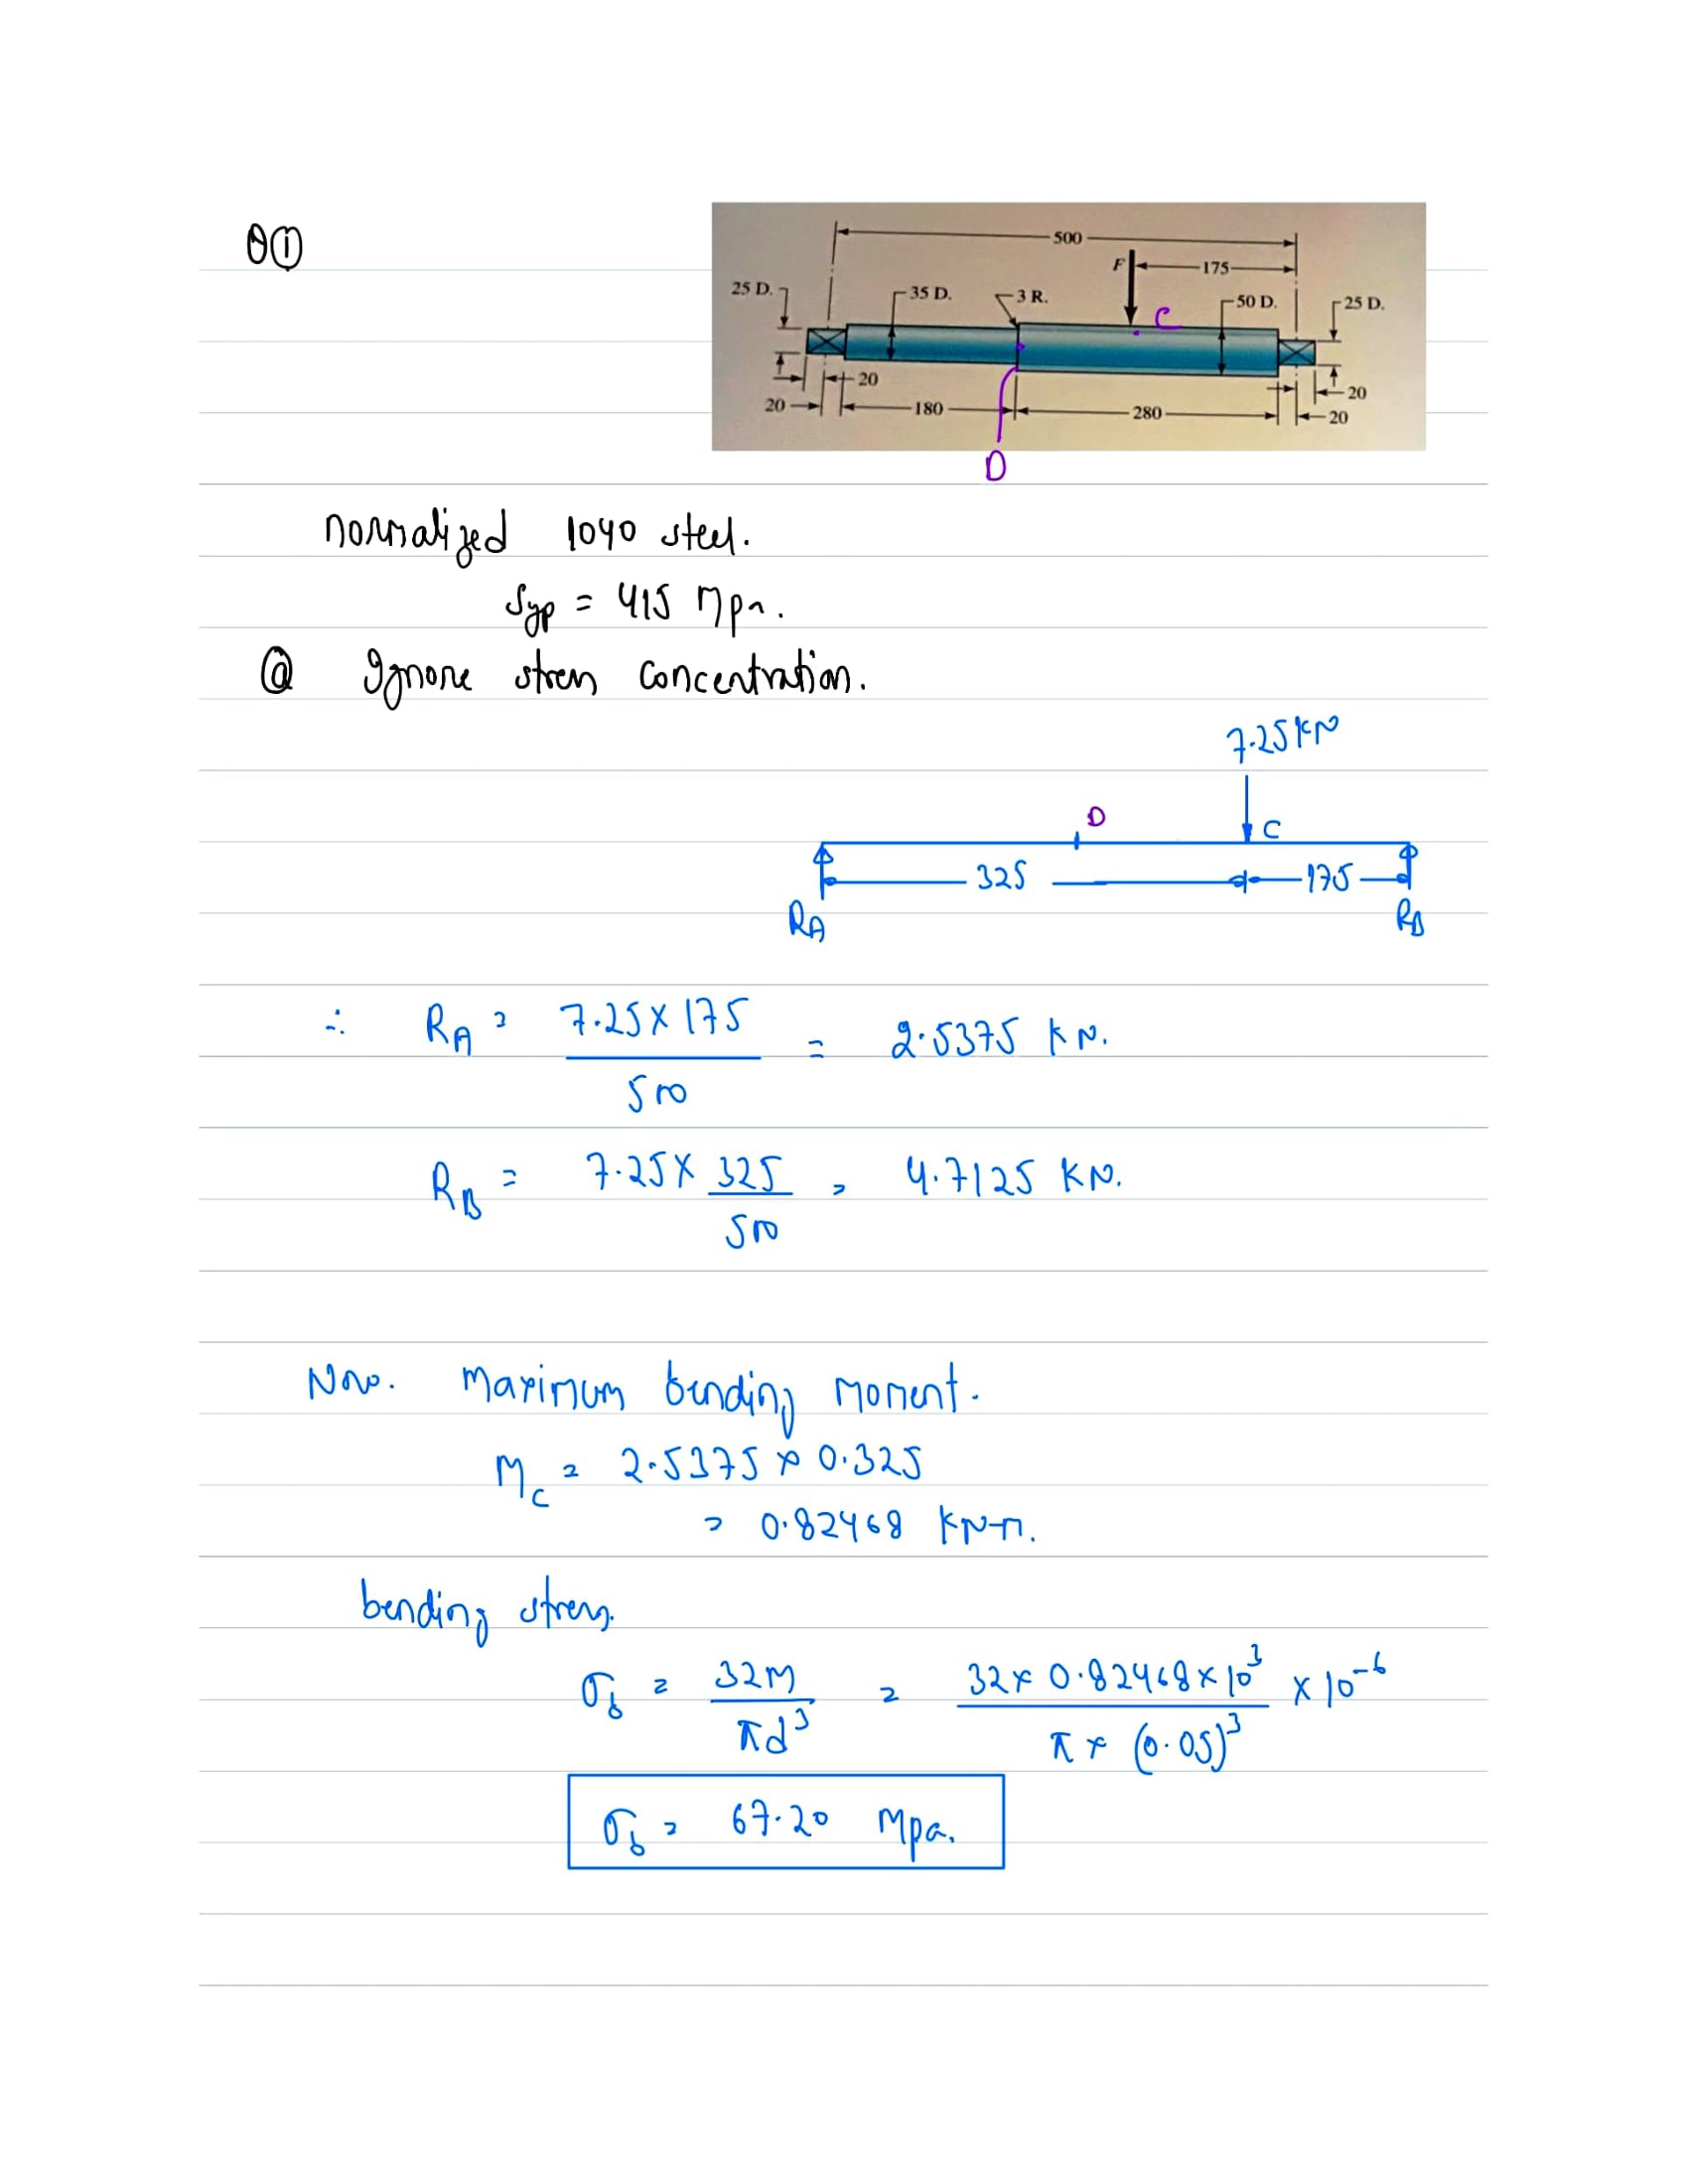 Q①
500
F 175
25 D. 35 D. 3 R. 50 D. 25 D.
C
20 20
20 180 280 20
D
normalized 1040 steel.
Syp = 415 Mpa.
ⓐ Ignore stress concentration.
7.25 KN
D
C
325 175
RA RB
∴ RA = 7.25 × 175 / 500 = 2.5375 KN.
RB = 7.25 × 325 / 500 = 4.7125 KN.
Now. Maximum bending moment.
Mc = 2.5375 × 0.325
= 0.82468 KN-m.
bending stress.
σb = 32M / πd³ = 32 × 0.82468 × 10³ / π × (0.05)³ × 10⁻⁶
σb = 67.20 Mpa.